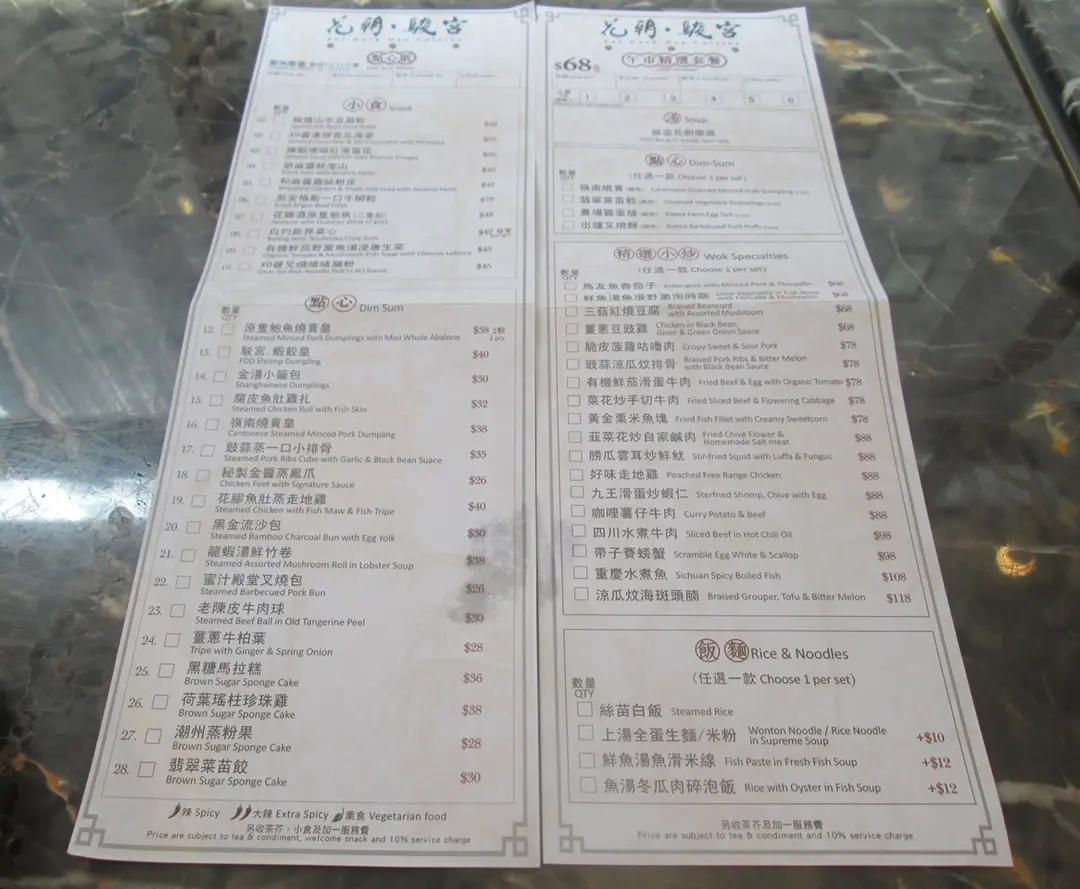 花朝·駿宮
點心紙
數量
小食 Snack
XO醬
Abalone with Huadiao Wine
花雕酒原隻鮑魚
白灼菜心
09. 有機鮮茄野菌魚湯浸唐生菜 $45
Organic Tomato & Mushroom Fish Soup with Chinese Lettuce
10. XO醬叉燒啫啫腸粉 $45
Char Siu Rice Noodle Roll in XO Sauce
點心 Dim Sum
數量
QTY
12. 原隻鮑魚燒賣皇 $38 2粒
Steamed Minced Pork Dumplings with Mini Whole Abalone 2 pcs
13. 駿宮.蝦餃皇 $40
FDD Shrimp Dumpling
14. 金湯小籠包 $30
Shanghainese Dumplings
15. 腐皮魚肚雞扎 $32
Steamed Chicken Roll with Fish Skin
16. 嶺南燒賣皇 $38
Cantonese Steamed Minced Pork Dumpling
17. 豉蒜蒸一口小排骨 $35
Steamed Pork Ribs Cube with Garlic & Black Bean Suace
18. 秘製金醬蒸鳳爪 $26
Chicken Feet with Signature Sauce
19. 花膠魚肚蒸走地雞 $40
Steamed Chicken with Fish Maw & Fish Tripe
20. 黑金流沙包 $30
Steamed Bamboo Charcoal Bun with Egg Yolk
21. 龍蝦湯鮮竹卷 $38
Steamed Assorted Mushroom Roll in Lobster Soup
22. 蜜汁殿堂叉燒包 $26
Steamed Barbecued Pork Bun
23. 老陳皮牛肉球 $30
Steamed Beef Ball in Old Tangerine Peel
24. 薑蔥牛柏葉 $28
Tripe with Ginger & Spring Onion
25. 黑糖馬拉糕 $36
Brown Sugar Sponge Cake
26. 荷葉瑤柱珍珠雞 $38
Brown Sugar Sponge Cake
27. 潮州蒸粉果 $28
Brown Sugar Sponge Cake
28. 翡翠菜苗餃 $30
Brown Sugar Sponge Cake
辣 Spicy 大辣 Extra Spicy 素食 Vegetarian food
另收茶芥，小食及加一服務費
Price are subject to tea & condiment, welcome snack and 10% service charge
花朝·駿宮
$68 午市精選套餐
1 2 3 4 5 6
湯 Soup
點心 Dim-Sum
(任選一款 Choose 1 per set)
數量
QTY
嶺南燒賣 Cantonese Steamed Minced Pork Dumpling
翡翠菜苗餃 Steamed Vegetable Dumplings
農場雞蛋撻 Baked Farm Egg Tart
出爐叉燒酥 Baked Barbecued Pork Puffs
精選小炒 Wok Specialties
(任選一款 Choose 1 per set)
數量
QTY
馬友魚香茄子 Aubergine with Minced Pork & Threadfin $68
鮮魚湯魚滑野菌泡時蔬 Local Vegetable in Fish Soup with Fishcake & Mushroom $68
三菇紅燒豆腐 Braised Beancurd with Assorted Mushroom $68
薑蔥豆豉雞 Chicken in Black Bean, Giner & Green Onion Sauce $68
脆皮菠蘿咕嚕肉 Crispy Sweet & Sour Pork $78
豉蒜涼瓜炆排骨 Braised Pork Ribs & Bitter Melon with Black Bean Sauce $78
有機鮮茄滑蛋牛肉 Fried Beef & Egg with Organic Tomato $78
菜花炒手切牛肉 Fried Sliced Beef & Flowering Cabbage $78
黃金粟米魚塊 Fried Fish Fillet with Creamy Sweetcorn $78
韮菜花炒自家鹹肉 Fried Chive Flower & Homemade Salt meat $88
勝瓜雲耳炒鮮魷 Stir-fried Squid with Luffa & Fungus $88
好味走地雞 Poached Free Range Chicken $88
九王滑蛋炒蝦仁 Sterfried Shrimp, Chive with Egg $88
咖哩薯仔牛肉 Curry Potato & Beef $88
四川水煮牛肉 Sliced Beef in Hot Chili Oil $98
帶子賽螃蟹 Scramble Egg White & Scallop $98
重慶水煮魚 Sichuan Spicy Boiled Fish $108
涼瓜炆海斑頭腩 Braised Grouper, Tofu & Bitter Melon $118
飯麵 Rice & Noodles
(任選一款 Choose 1 per set)
數量
QTY
絲苗白飯 Steamed Rice
上湯全蛋生麵/米粉 Wonton Noodle / Rice Noodle in Supreme Soup +$10
鮮魚湯魚滑米線 Fish Paste in Fresh Fish Soup +$12
魚湯冬瓜肉碎泡飯 Rice with Oyster in Fish Soup +$12
另收茶芥及加一服務費
Price are subject to tea & condiment, and 10% service charge